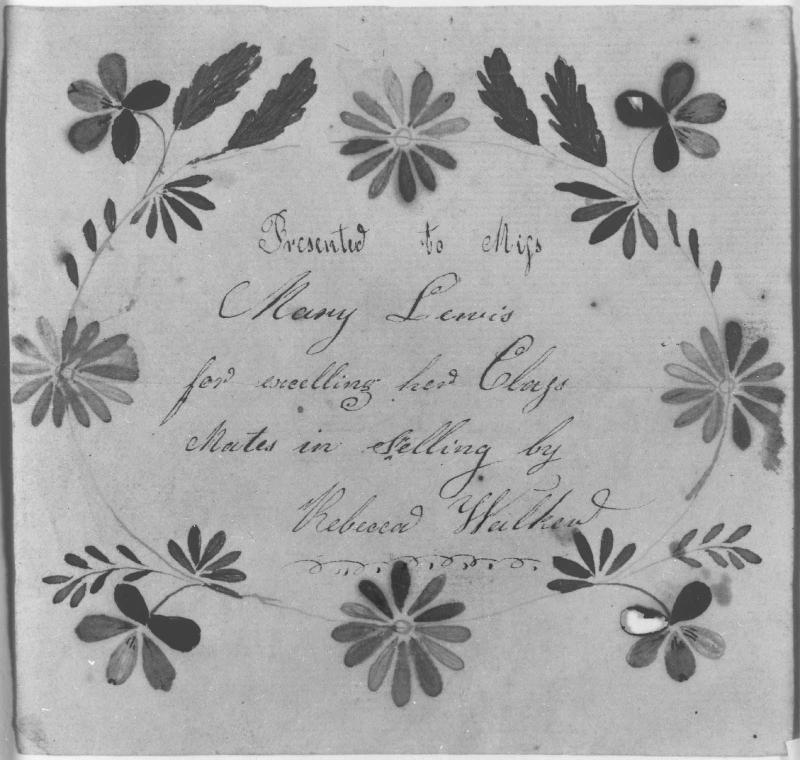 Presented to Miss
Mary Lewis
for excelling her Class
Mates in Spelling by
Rebecca Walker